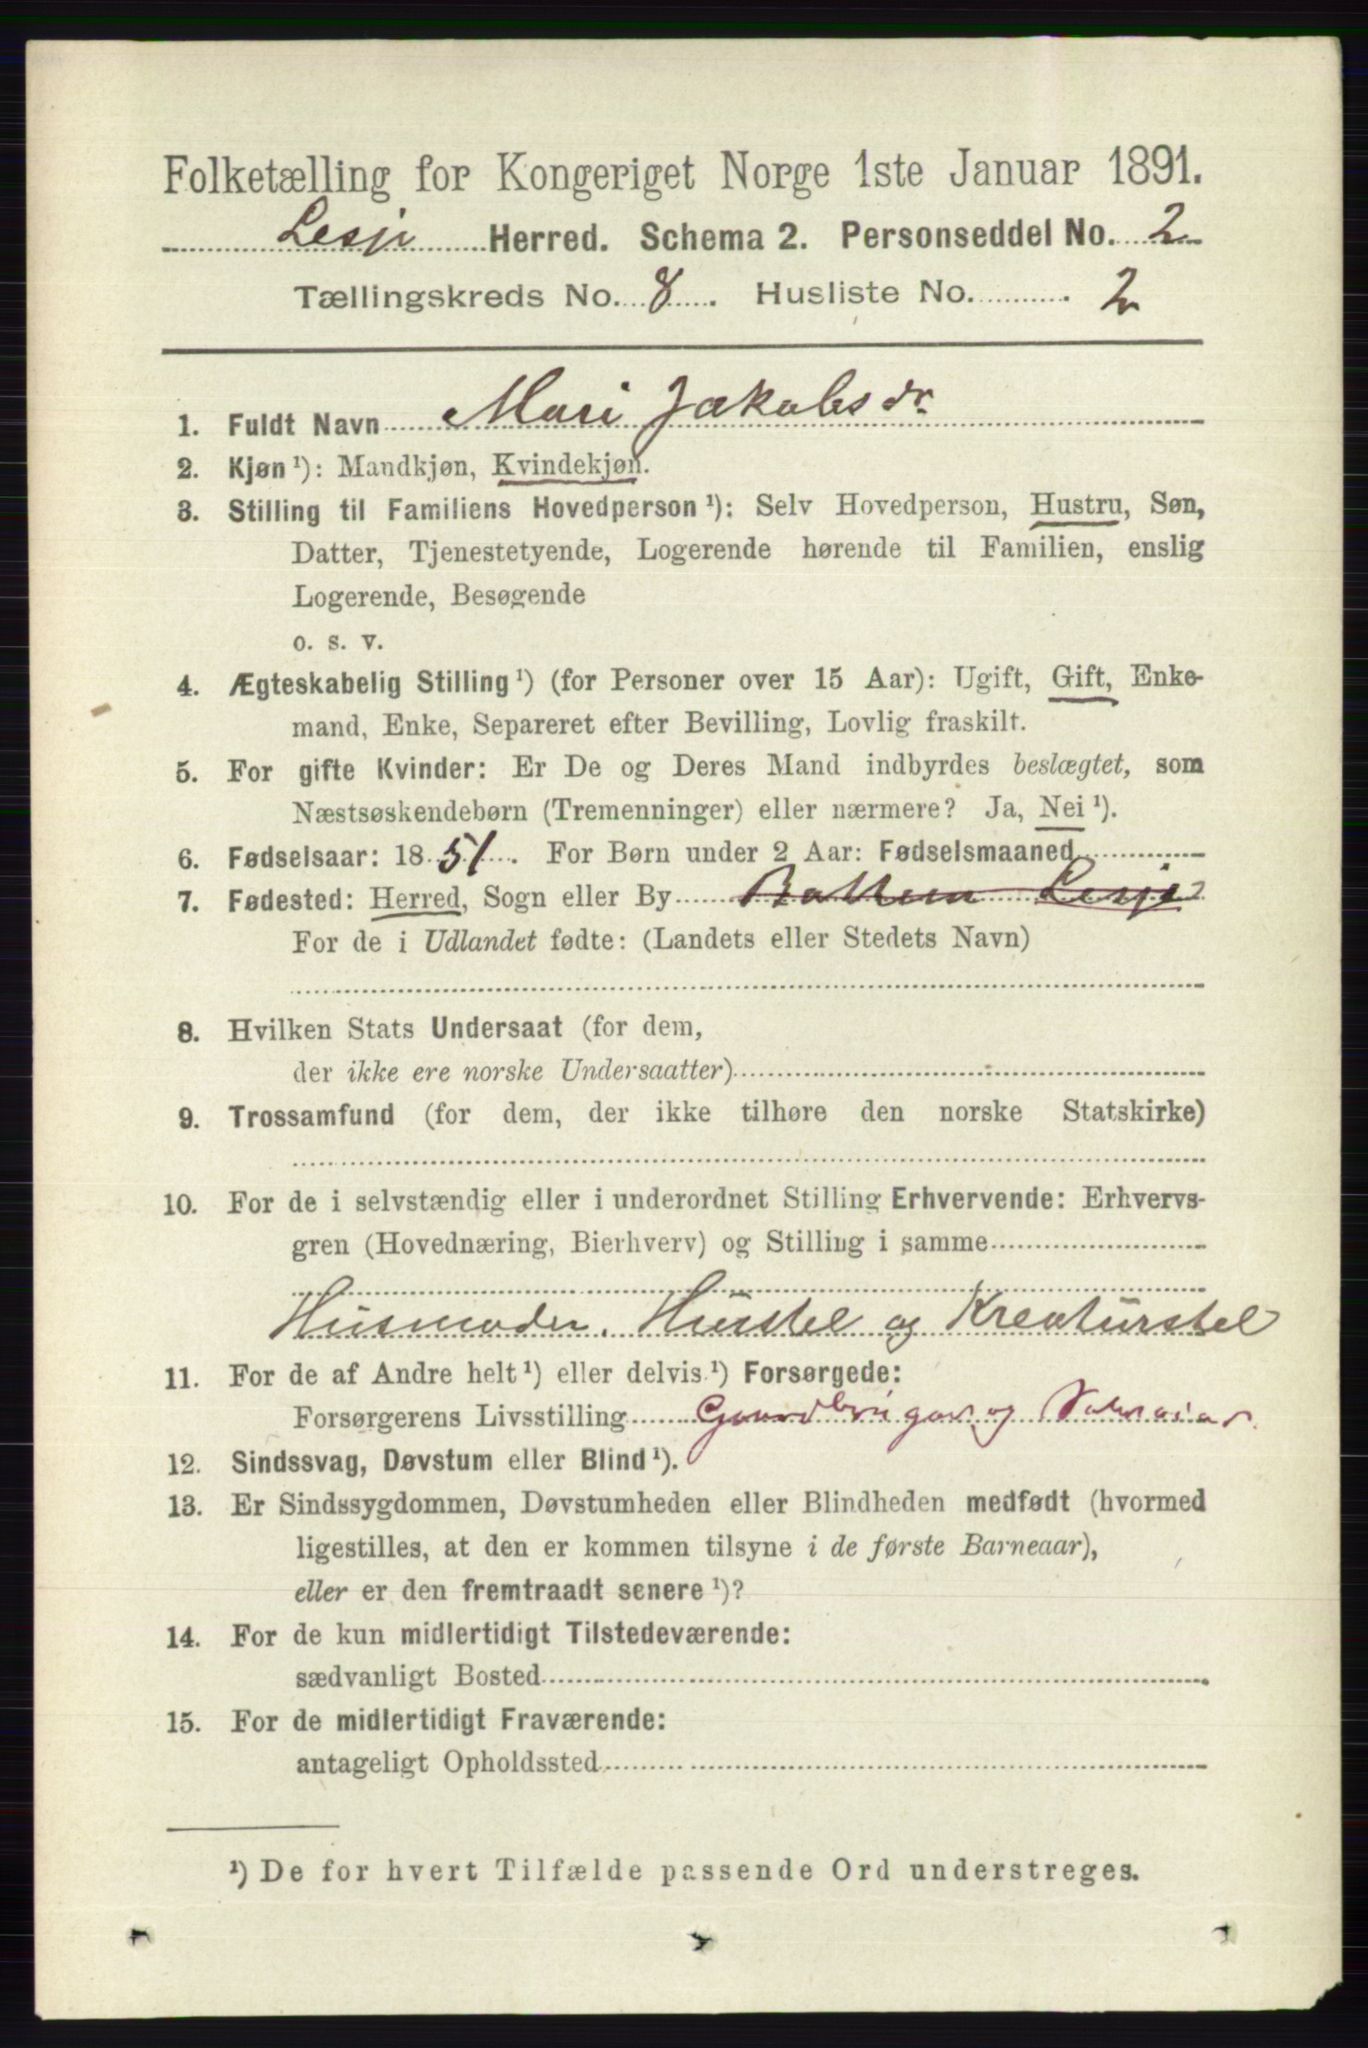 Folketælling for Kongeriget Norge 1ste Januar 1891.
Lesje Herred. Schema 2. Personseddel No. 2
Tællingskreds No. 8. Husliste No. 2
1. Fuldt Navn Mari Jakobsdr.
2. Kjøn ¹): Mandkjøn, Kvindekjøn.
3. Stilling til Familiens Hovedperson ¹): Selv Hovedperson, Hustru, Søn,
Datter, Tjenestetyende, Logerende hørende til Familien, enslig
Logerende, Besøgende
o. s. v.
4. Ægteskabelig Stilling ¹) (for Personer over 15 Aar): Ugift, Gift, Enke-
mand, Enke, Separeret efter Bevilling, Lovlig fraskilt.
5. For gifte Kvinder: Er De og Deres Mand indbyrdes beslægtet, som
Næstsøskendebørn (Tremenninger) eller nærmere? Ja, Nei ¹).
6. Fødselsaar: 1851. For Børn under 2 Aar: Fødselsmaaned
7. Fødested: Herred, Sogn eller By Lesje
For de i Udlandet fødte: (Landets eller Stedets Navn)
8. Hvilken Stats Undersaat (for dem,
der ikke ere norske Undersaatter)
9. Trossamfund (for dem, der ikke tilhøre den norske Statskirke)
10. For de i selvstændig eller i underordnet Stilling Erhvervende: Erhvervs-
gren (Hovednæring, Bierhverv) og Stilling i samme
Husmoder. Husstel og Kreaturstel
11. For de af Andre helt ¹) eller delvis ¹) Forsørgede:
Forsørgerens Livsstilling Gaardbruger og
12. Sindssvag, Døvstum eller Blind ¹).
13. Er Sindssygdommen, Døvstumheden eller Blindheden medfødt (hvormed
ligestilles, at den er kommen tilsyne i de første Barneaar),
eller er den fremtraadt senere ¹)?
14. For de kun midlertidigt Tilstedeværende:
sædvanligt Bosted
15. For de midlertidigt Fraværende:
antageligt Opholdssted
¹) De for hvert Tilfælde passende Ord understreges.